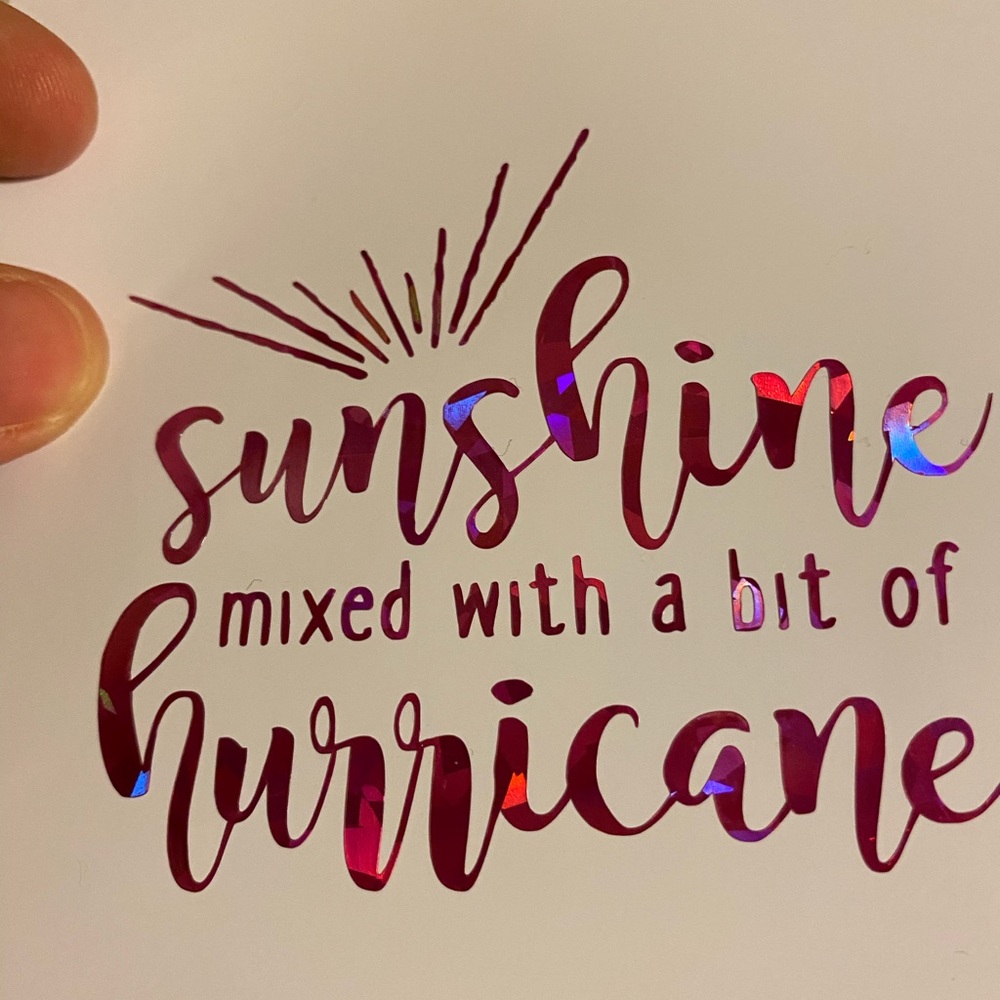 sunshine
mixed with a bit of
hurricane